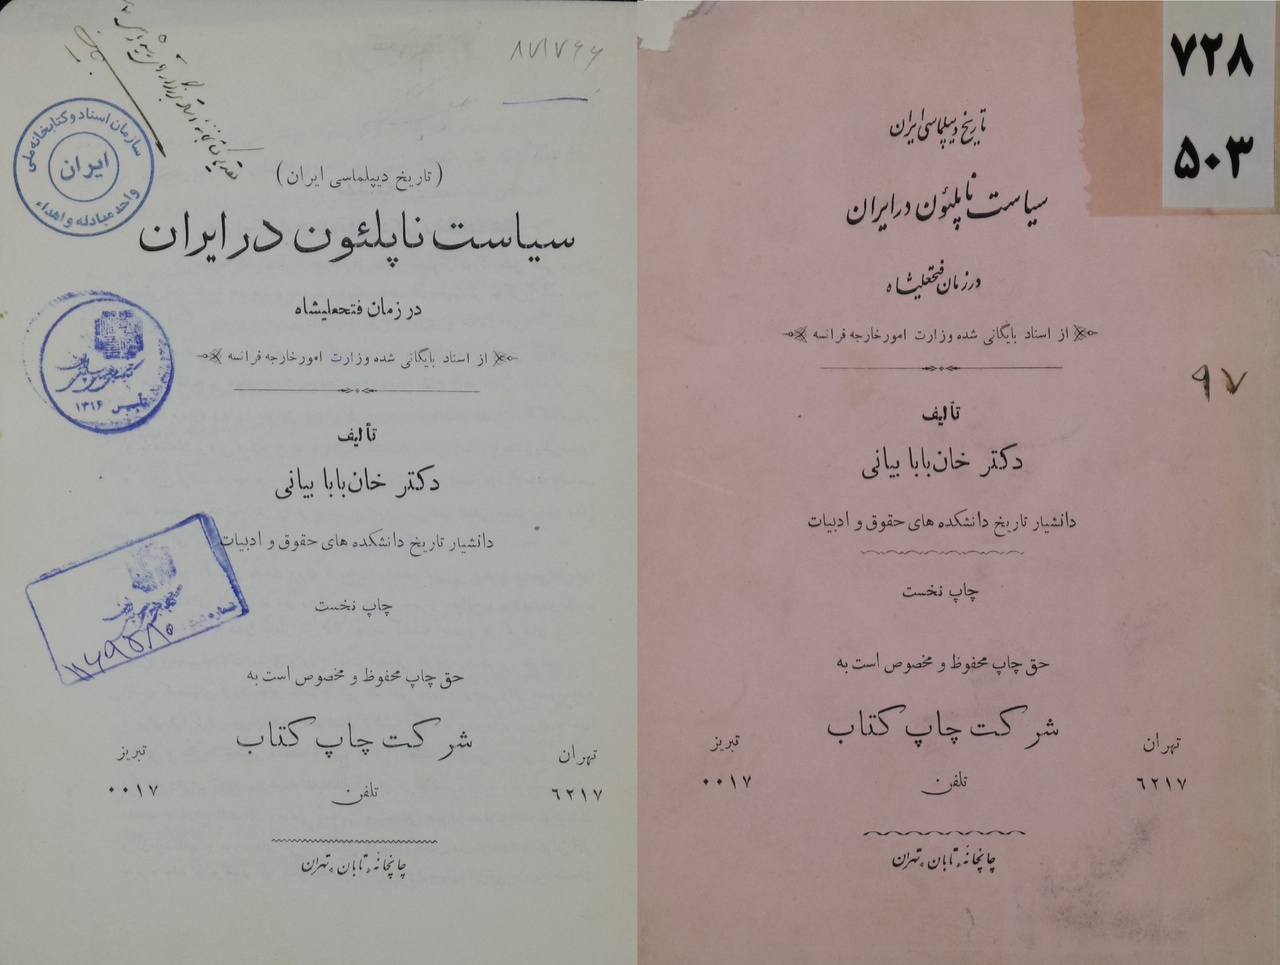 ۷۲۸
۵۰۳
تاریخ دیپلماسی ایران
سیاست ناپلئون در ایران
در زمان فتحعلیشاه
از اسناد بایگانی شده وزارت امور خارجه فرانسه
۹۷
تألیف
دکتر خان‌بابا بیانی
دانشیار تاریخ دانشکده های حقوق و ادبیات
چاپ نخست
حق چاپ محفوظ و مخصوص است به
شرکت چاپ کتاب
تهران تلفن تبریز
٦٢١٧ ٠٠١٧
چاپخانه تابان، تهران
۸۷۱۷۶۶
سازمان اسناد و کتابخانه ملی
ایران
واحد مبادله و اهداء
(تاریخ دیپلماسی ایران)
سیاست ناپلئون در ایران
در زمان فتحعلیشاه
از اسناد بایگانی شده وزارت امور خارجه فرانسه
تأسیس ۱۳۱۶
تألیف
دکتر خان‌بابا بیانی
دانشیار تاریخ دانشکده های حقوق و ادبیات
شماره ثبت
۱۱۶۹۵۸۰
چاپ نخست
حق چاپ محفوظ و مخصوص است به
شرکت چاپ کتاب
تهران تلفن تبریز
٦٢١٧ ٠٠١٧
چاپخانه تابان، تهران